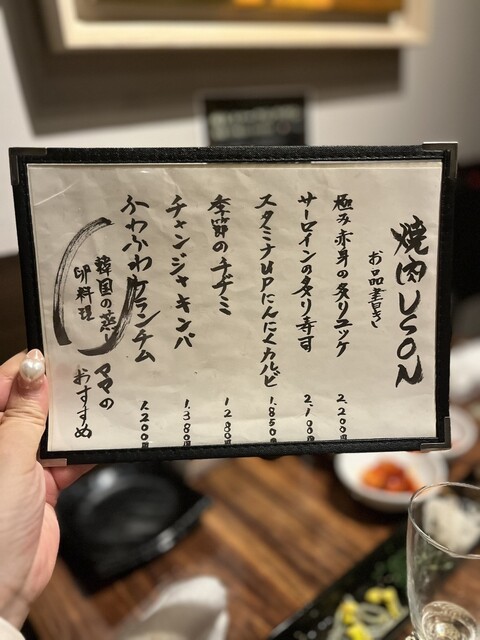 焼肉USON
お品書き
極み赤身の炙りユッケ 2,200円
サーロインの炙り寿司 2,100円
スタミナUPにんにくカルビ 1,850円
季節のチヂミ 1,280円
チャンジャキンパ 1,380円
ふわふわケランチム 1,200円
韓国の蒸し
卵料理
ママの
おすすめ